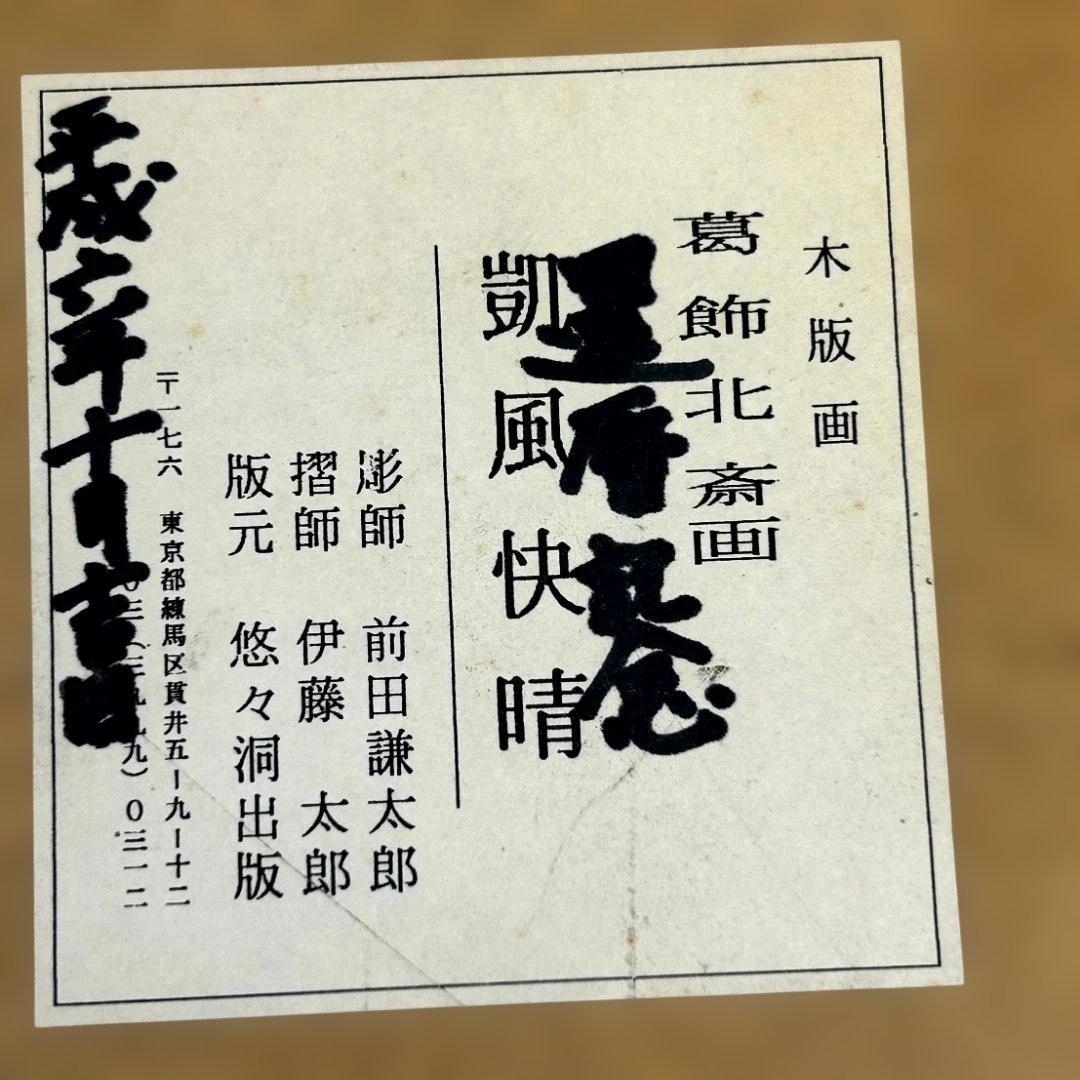 木版画
葛飾北斎画
凱風快晴
彫師 前田謙太郎
摺師 伊藤 太郎
版元 悠々洞出版
〒一七六 東京都練馬区貫井五ー九ー十二
〇三(三九九九)〇三一二
平成六年十月吉日